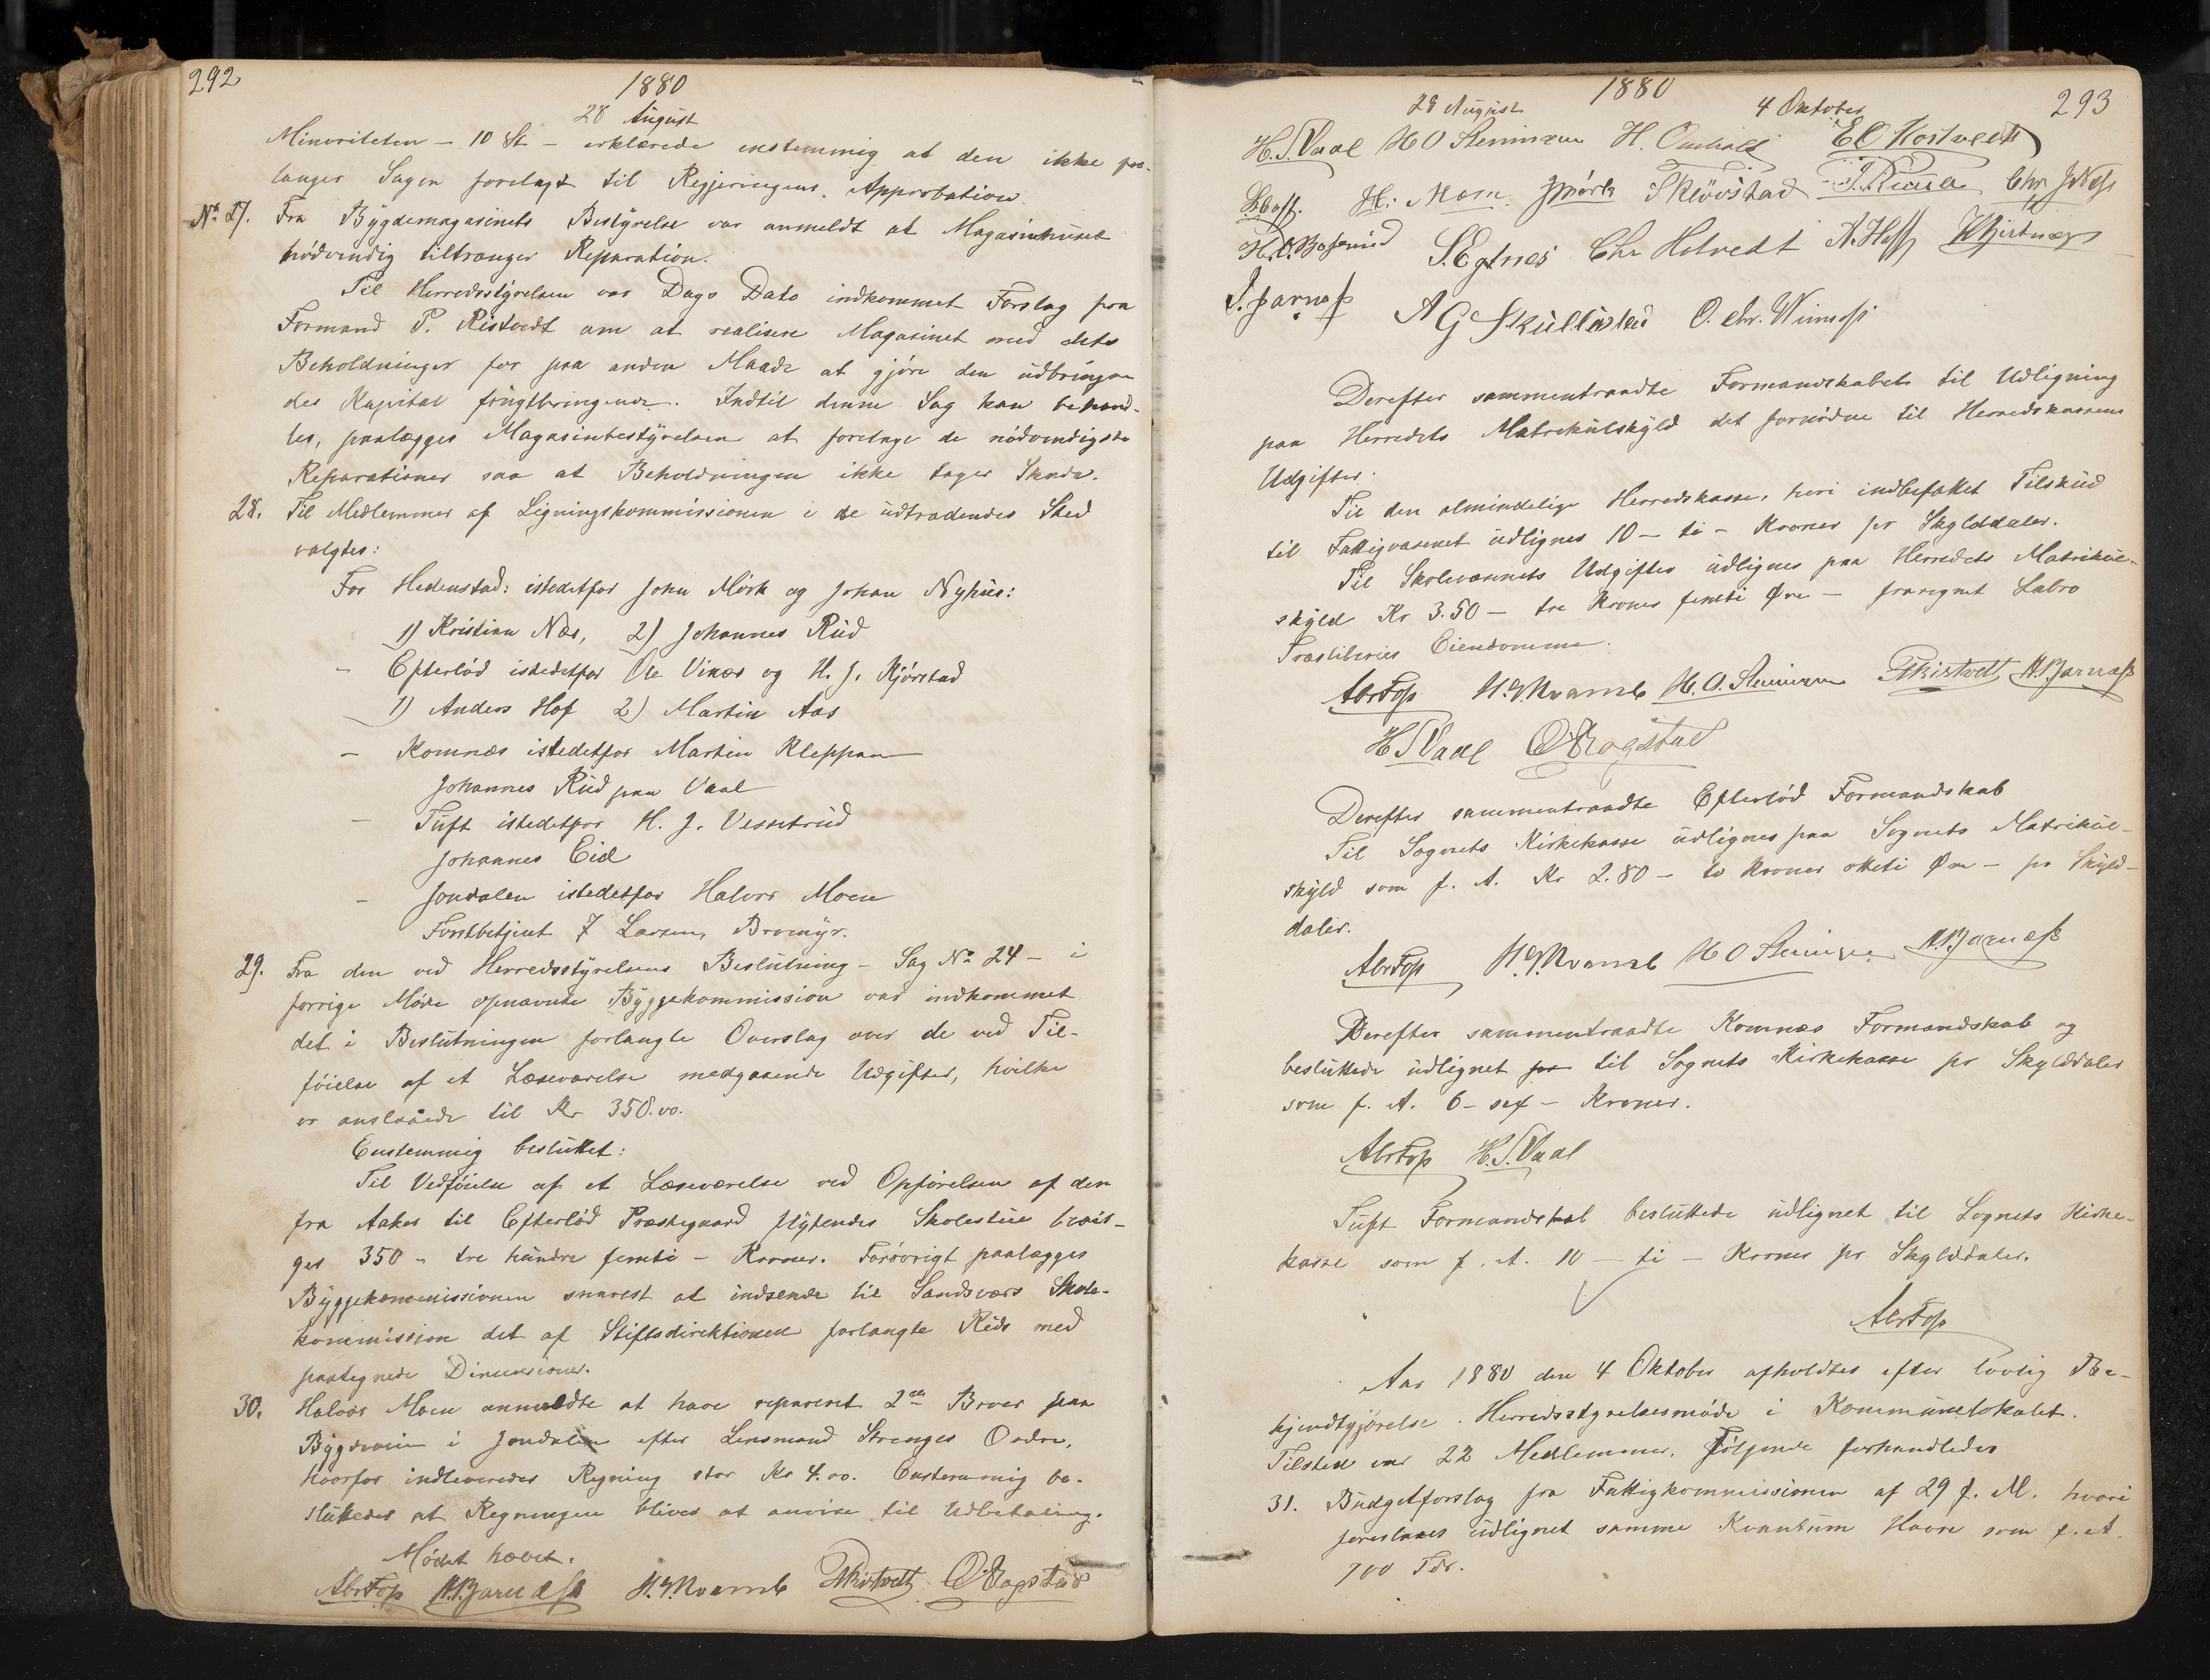 292
1880
28 August
Minoriteten – 10 St – erklærede enstemmig at den ikke for-
langer Sagen forelagt til Regjeringens Approbation.
No 27. Fra Bygdemagasinets Bestyrelse var anmeldt at Magasinhuset
nødvendig tiltrænger Reparation.
Til Herredsstyrelsen var Dags Dato indkommet Forslag fra
Formand P. Ristvedt om at realisere Magasinet med dets
Beholdninger for paa anden Maade at gjøre den udbringen-
des Kapital frugtbringende. Indtil denne Sag kan behand-
les, paalægges Magasinbestyrelsen at foretage de nødvendigste
Reparationer saa at Beholdningen ikke tager Skade.
28. Til Medlemmer af Ligningskommissionen i de udtrædendes Sted
valgtes:
For Hedenstad: istedetfor John Mørk og Johan Nyhus:
1) Kristian Næs, 2) Johannes Rud
– Eftelød istedetfor Ole Vinæs og H. J. Kjørstad
1) Anders Hof 2) Martin Aas
– Komnæs istedetfor Martin Kleppan
Johannes Rud paa Vaal
– Tuft istedetfor H. J. Vessetrud
Johannes Eid
– Jondalen istedetfor Halvor Moen
Forstbetjent J Larsen, Bromyr.
29. Fra den ved Herredsstyrelsens Beslutning – Sag No 24 – i
forrige Møde opnævnte Byggekommission var indkommet
det i Beslutningen forlangte Overslag over de ved Til-
føielse af et Læseværelse medgaaende Udgifter, hvilke
er anslaaede til Kr 350.00.
Enstemmig besluttet:
Til Vedføielse af et Læseværelse ved Opførelsen af den
fra Aaker til Eftelød Præstegaard flytendes Skolestue bevil-
ges 350 – tre hundre femti – Kroner. Forøvrigt paalægges
Byggekommissionen snarest at indsende til Sandsværs Skole-
kommission det af Stiftsdirektionen forlangte Rids med
paategnede Dimensioner.
30. Halvor Moen anmeldte at have repareret 2de Broer paa
Bygdeveien i Jondalen efter Lensmand Strenges Ordre,
hvorfor indleveredes Regning stor Kr 4.00. Enstemmig be-
sluttedes at Regningen blives at anvise til Udbetaling.
Mødet hævet.
AbrTop N.Bjarnæss H.G.Kvamb PRistvedt O.Bogstad
1880
293
28 August
4 Oktober
H.S.Vaal H O Steiniger H. Omholt E C Kostvedt
H. Moen JMørk SKløvstad Chr JNess
S.Egtnes Chr Hotvedt A.Hoff
A G Skullestad O. Chr. Winess
Derefter sammentraadte Formandskabet til Udligning
paa Herredets Matrikulskyld det fornødne til Herredskassens
Udgifter.
Til den almindelige Herredskasse, heri indbefattet Tilskud
til Fattigvæsenet udlignes 10 – ti – Kroner pr Skylddaler.
Til Skolevæsenets Udgifter udlignes paa Herredets Matrikul-
skyld Kr 3.50 – tre Kroner femti Øre – fraregnet Labro
Træsliberies Eiendomme.
AbrTop H.G.Kvamb H.O.Steiniger PRistvedt N.Bjarnæss
H S Vaal O.Bogstad
Derefter sammentraadte Eftelød Formandskab
Til Sognets Kirkekasse udlignes paa Sognets Matrikul-
skyld som f. A. Kr 2.80 – to Kroner otteti Øre – pr Skyld-
daler.
AbrTop H.G.Kvamb H O Steiniger N.Bjarnæss
Derefter sammentraadte Komnæs Formandskab og
besluttede udlignet til Sognets Kirkekasse pr Skylddaler
som f. A. 6 – sex – Kroner.
AbrTop H.S.Vaal
Tuft Formandskab besluttede udlignet til Sognets Kirke-
kasse som f. A. 10 – ti – Kroner pr Skylddaler.
AbrTop
Aar 1880 den 4 Oktober afholdtes efter lovlig Be-
kjendtgjørelse Herredsstyrelsesmøde i Kommunelokalet.
Tilsted var 22 Medlemmer. Følgende forhandledes
31. Budgetforslag fra Fattigkommissionen af 29 f. M. hvori
foreslaaes udlignet samme Kvantum Havre som f. A.
700 Tdr.